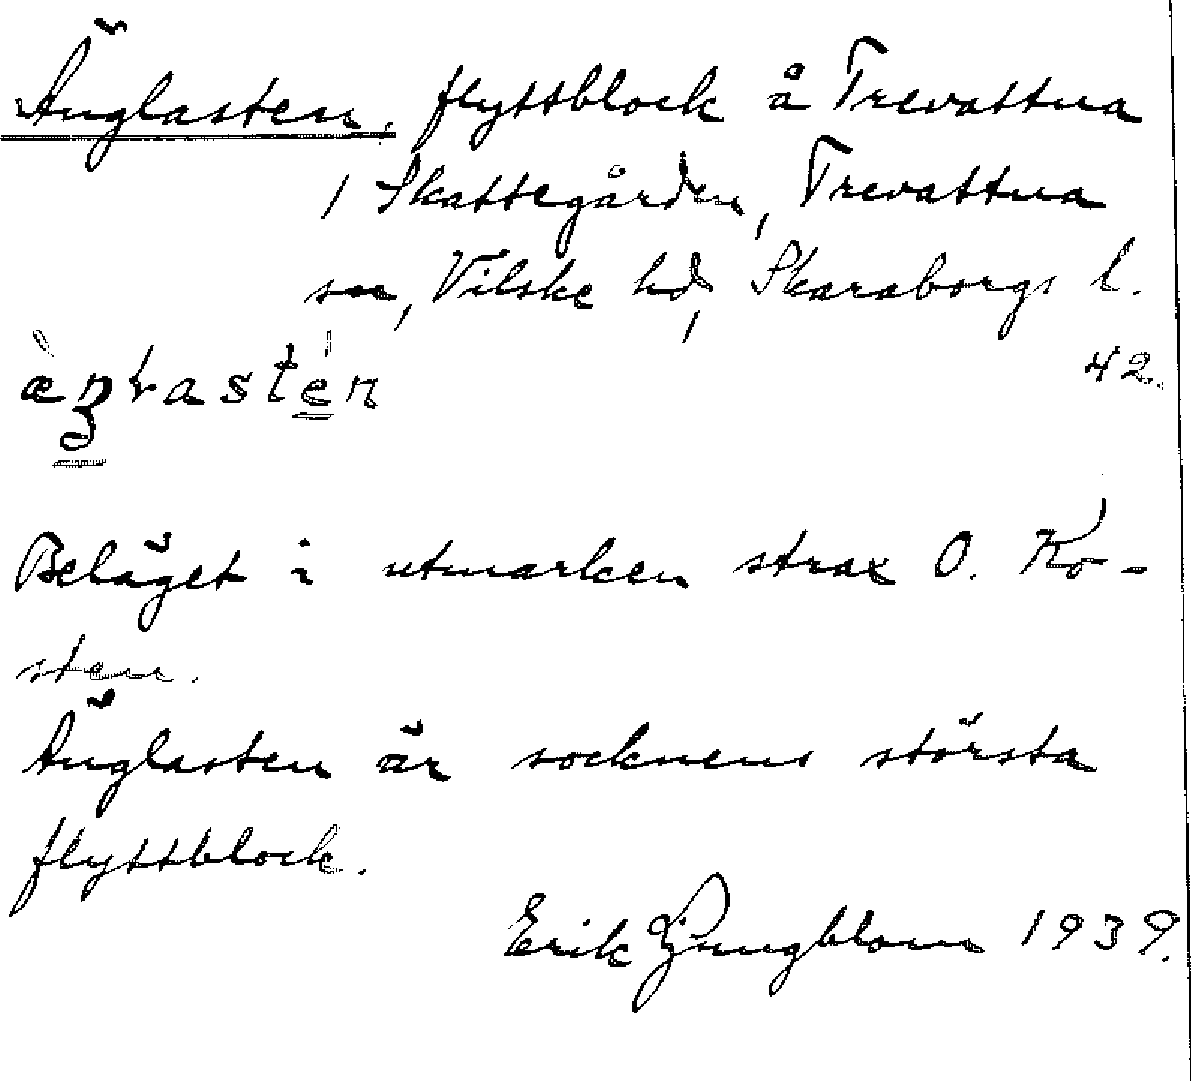 Änglasten, flyttblock å Trevattna
1 Skattegården, Trevattna
sn, Vilske hd, Skaraborgs l.
42.
Beläget i utmarken strax O. Ko-
sten.
Änglasten är socknens största
flyttblock.
Erik Ljungblom 1939.